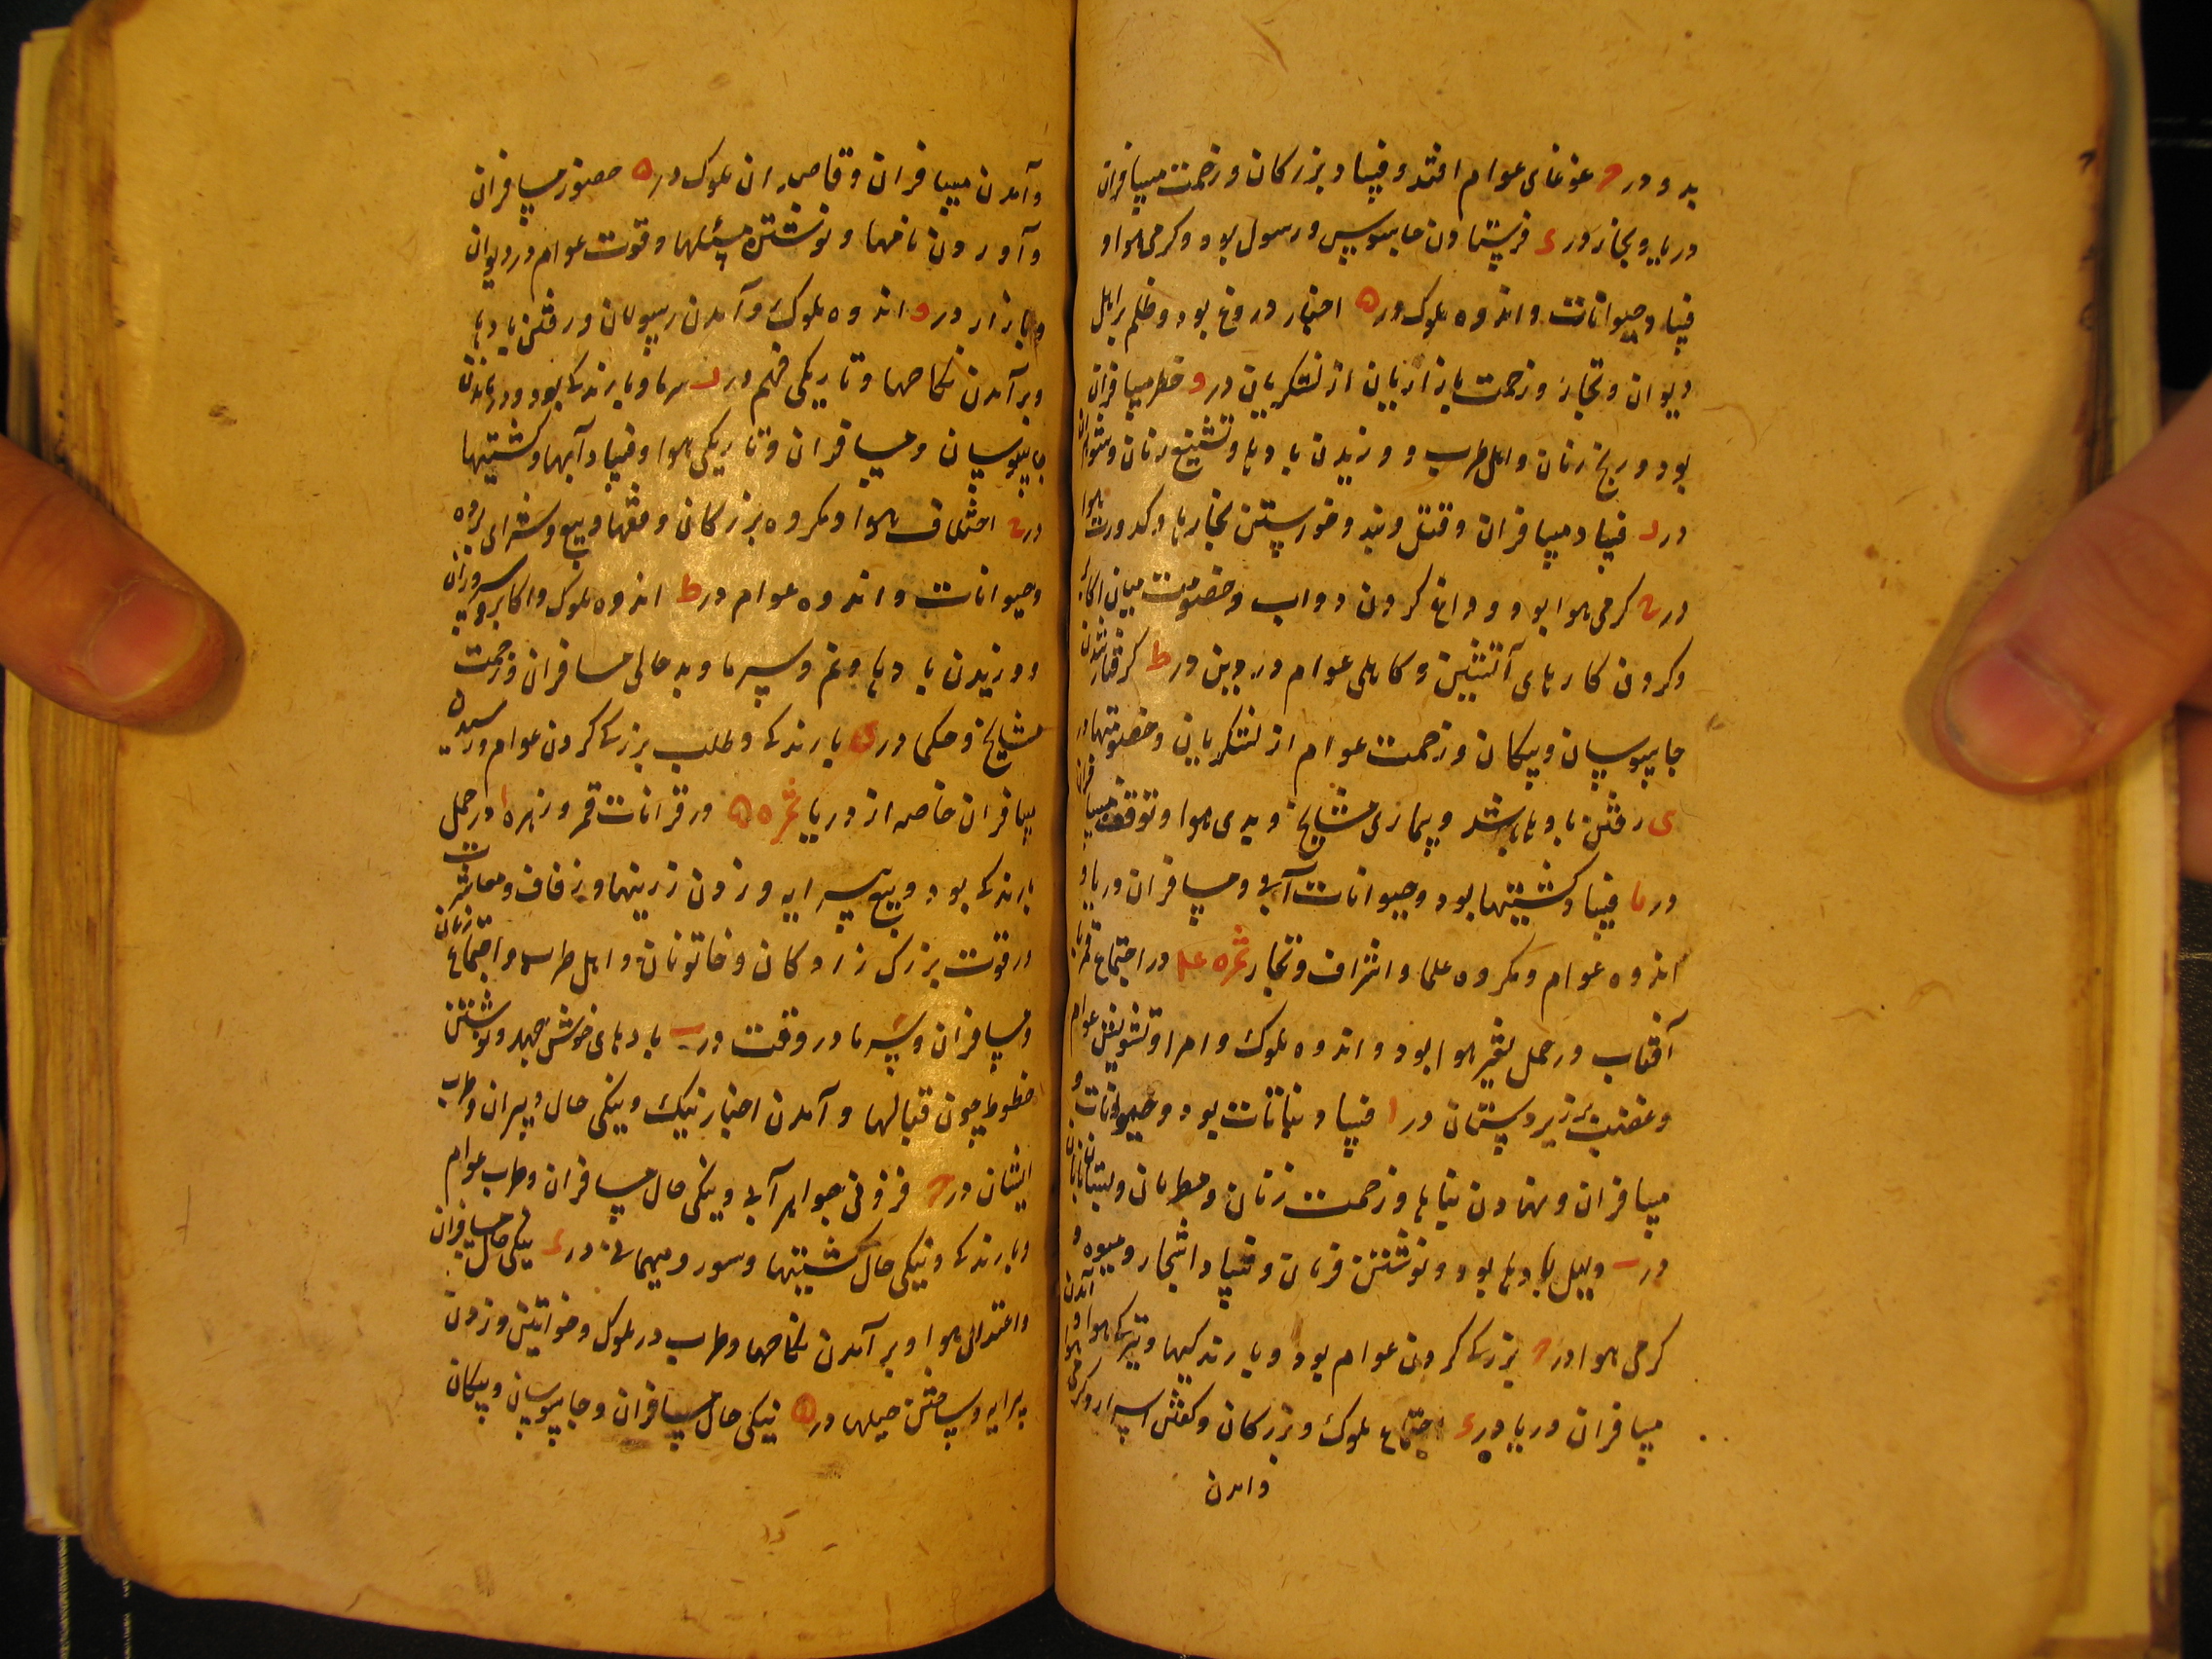 بد و در ح غوغای عوام افتد و فساد بزرگان و زحمت مسافران
دریا و بخار در ی فرستادن جاسوس و رسول بود و گرمی هوا و
فساد حیوانات و اندوه ملوک در ه اخبار دروغ بود و ظلم بر اهل
دیوان و تجار و زحمت بازاریان از لشکریان در و خطر مسافران
بود و رنج زنان و اهل طرب و وزیدن بادها و تشنیع زنان و
در ر فساد مسافران و قتل و بند و خورستن بخارها و کدورت هوا
در ح گرمی هوا بود و داغ کردن دواب و خصومت میان اکابر
و کردن کارهای آتشین و کاهلی عوام در دین در ط گرفتار شدن
جاسوسان و پیکان و زحمت عوام از لشکریان و خصومتها در
ی رفتن بادها باشد و بیماری مشایخ و بدی هوا و توقف مسافران
در یا فساد کشتیها بود و حیوانات آبی و مسافران دریا و
اندوه عوام و مکروه علما و اشراف و تجار ثمره در اجتماع قمر با
آفتاب در حمل تغیر هوا بود و اندوه ملوک و امرا و تشویش عوام
و غضب بر زیردستان در ا فساد نباتات بود و حیوانات و
مسافران و نهادن بناها و زحمت زنان و مطربان و
در ب دلیل بادها بود و نوشتن فرمان و فساد اشجار و میوه و
گرمی هوا در ح بزرگی کردن عوام بود و بارندگیها و تیرگی هوا و آمدن
مسافران دریا در ی اجتماع ملوک و بزرگان و کفش اسرار و گرمی هوا
و امدن
و آمدن مسافران و قاصدان ملوک در ه حضور مسافران
و آوردن نامها و نوشتن مسئلها و قوت عوام در دیوان
و بازار در و اندوه ملوک و آمدن رسولان و رفتن بادها
و برآمدن نکاحها و تاریکی فهم در ر سرما و بارندگی بود و درماندن
جاسوسان و مسافران و تاریکی هوا و فساد آبها و کشتیها
در ح اختلاف هوا و مکروه بزرگان و فقها و بیع و شرای برده
و حیوانات و اندوه عوام در ط اندوه ملوک و اکابر و سروران
و وزیدن بادها و نم و سرما و بد حالی مسافران و زحمت
مشایخ و حکما در ی بارندگی و طلب بزرگی کردن عوام و رسیدن
مسافران خاصه از دریا ثمره در قرانات قمر و زهره ا در حمل
بارندگی بود و بیع پیرایه و زدن زرینها و زفاف و معاشرت
در قوت بزرگ زادگان و خاتونان و اهل طرب و اجتماع زنان
و مسافران و سرما در وقت در ب بادهای خوش جهد و نوشتن
خطوط چون قبالها و آمدن اخبار نیک و نیکی حال دبیران و طرب
ایشان در ح فزونی جواهر آبی و نیکی حال مسافران و طرب عوام
و بارندگی و نیکی حال کشتیها و سور و میهمانی در ی نیکی حال مسافران
و اعتدال هوا و برآمدن نکاحها و طرب در ملوک و خواتین و زدن
پیرایه و ساختن حیلها در ه نیکی حال مسافران و جاسوسان و پیکان